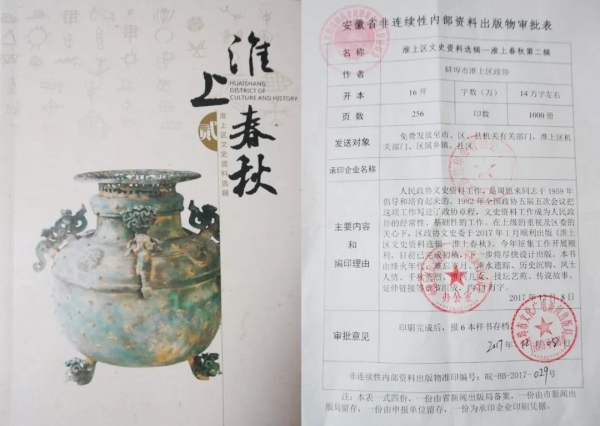 淮上春秋
HUAISHANG
DISTRICT OF
CULTURE AND HISTORY
贰
淮上区文史资料选辑
安徽省非连续性内部资料出版物审批表
名称 淮上区文史资料选辑—淮上春秋第二辑
作者 蚌埠市淮上区政协
开本 16开 字数（万） 14万字左右
页数 256 印数 1000册
发送对象 免费发放至市、区、县机关有关部门，淮上区机
关部门、区属乡镇、社区
承印企业名称
主要内容
和
编印理由
人民政协文史资料工作，是周恩来同志于1959年
倡导和培育起来的。1982年全国政协五届五次会议把
这项工作写进了政协章程，文史资料工作成为人民政
协的经常性、基础性的工作。在上级的重视及区委的
关心下，区政协文史委于2017年1月顺利出版《淮上
区文史资料选辑—淮上春秋》。今年征集工作开展顺
利，目前已完成初稿，一步将尽快设计出版。本书
由烽火年代、岁月、水遗踪、历史沉钩、风土
人情、千秋、儿女、技坛艺苑、传说故事、
延伸链接等组成，约14万字。
办公室
2017年12月8日
审批意见 印刷完成后，报6本样书存档。
2017年
非连续性内部资料出版物准印编号：皖-BB-2017-029号
注：本表一式四份，一份由省新闻出版局备案，一份由市新闻出
版局留存，一份由申报单位留存，一份为承印企业印刷凭据。